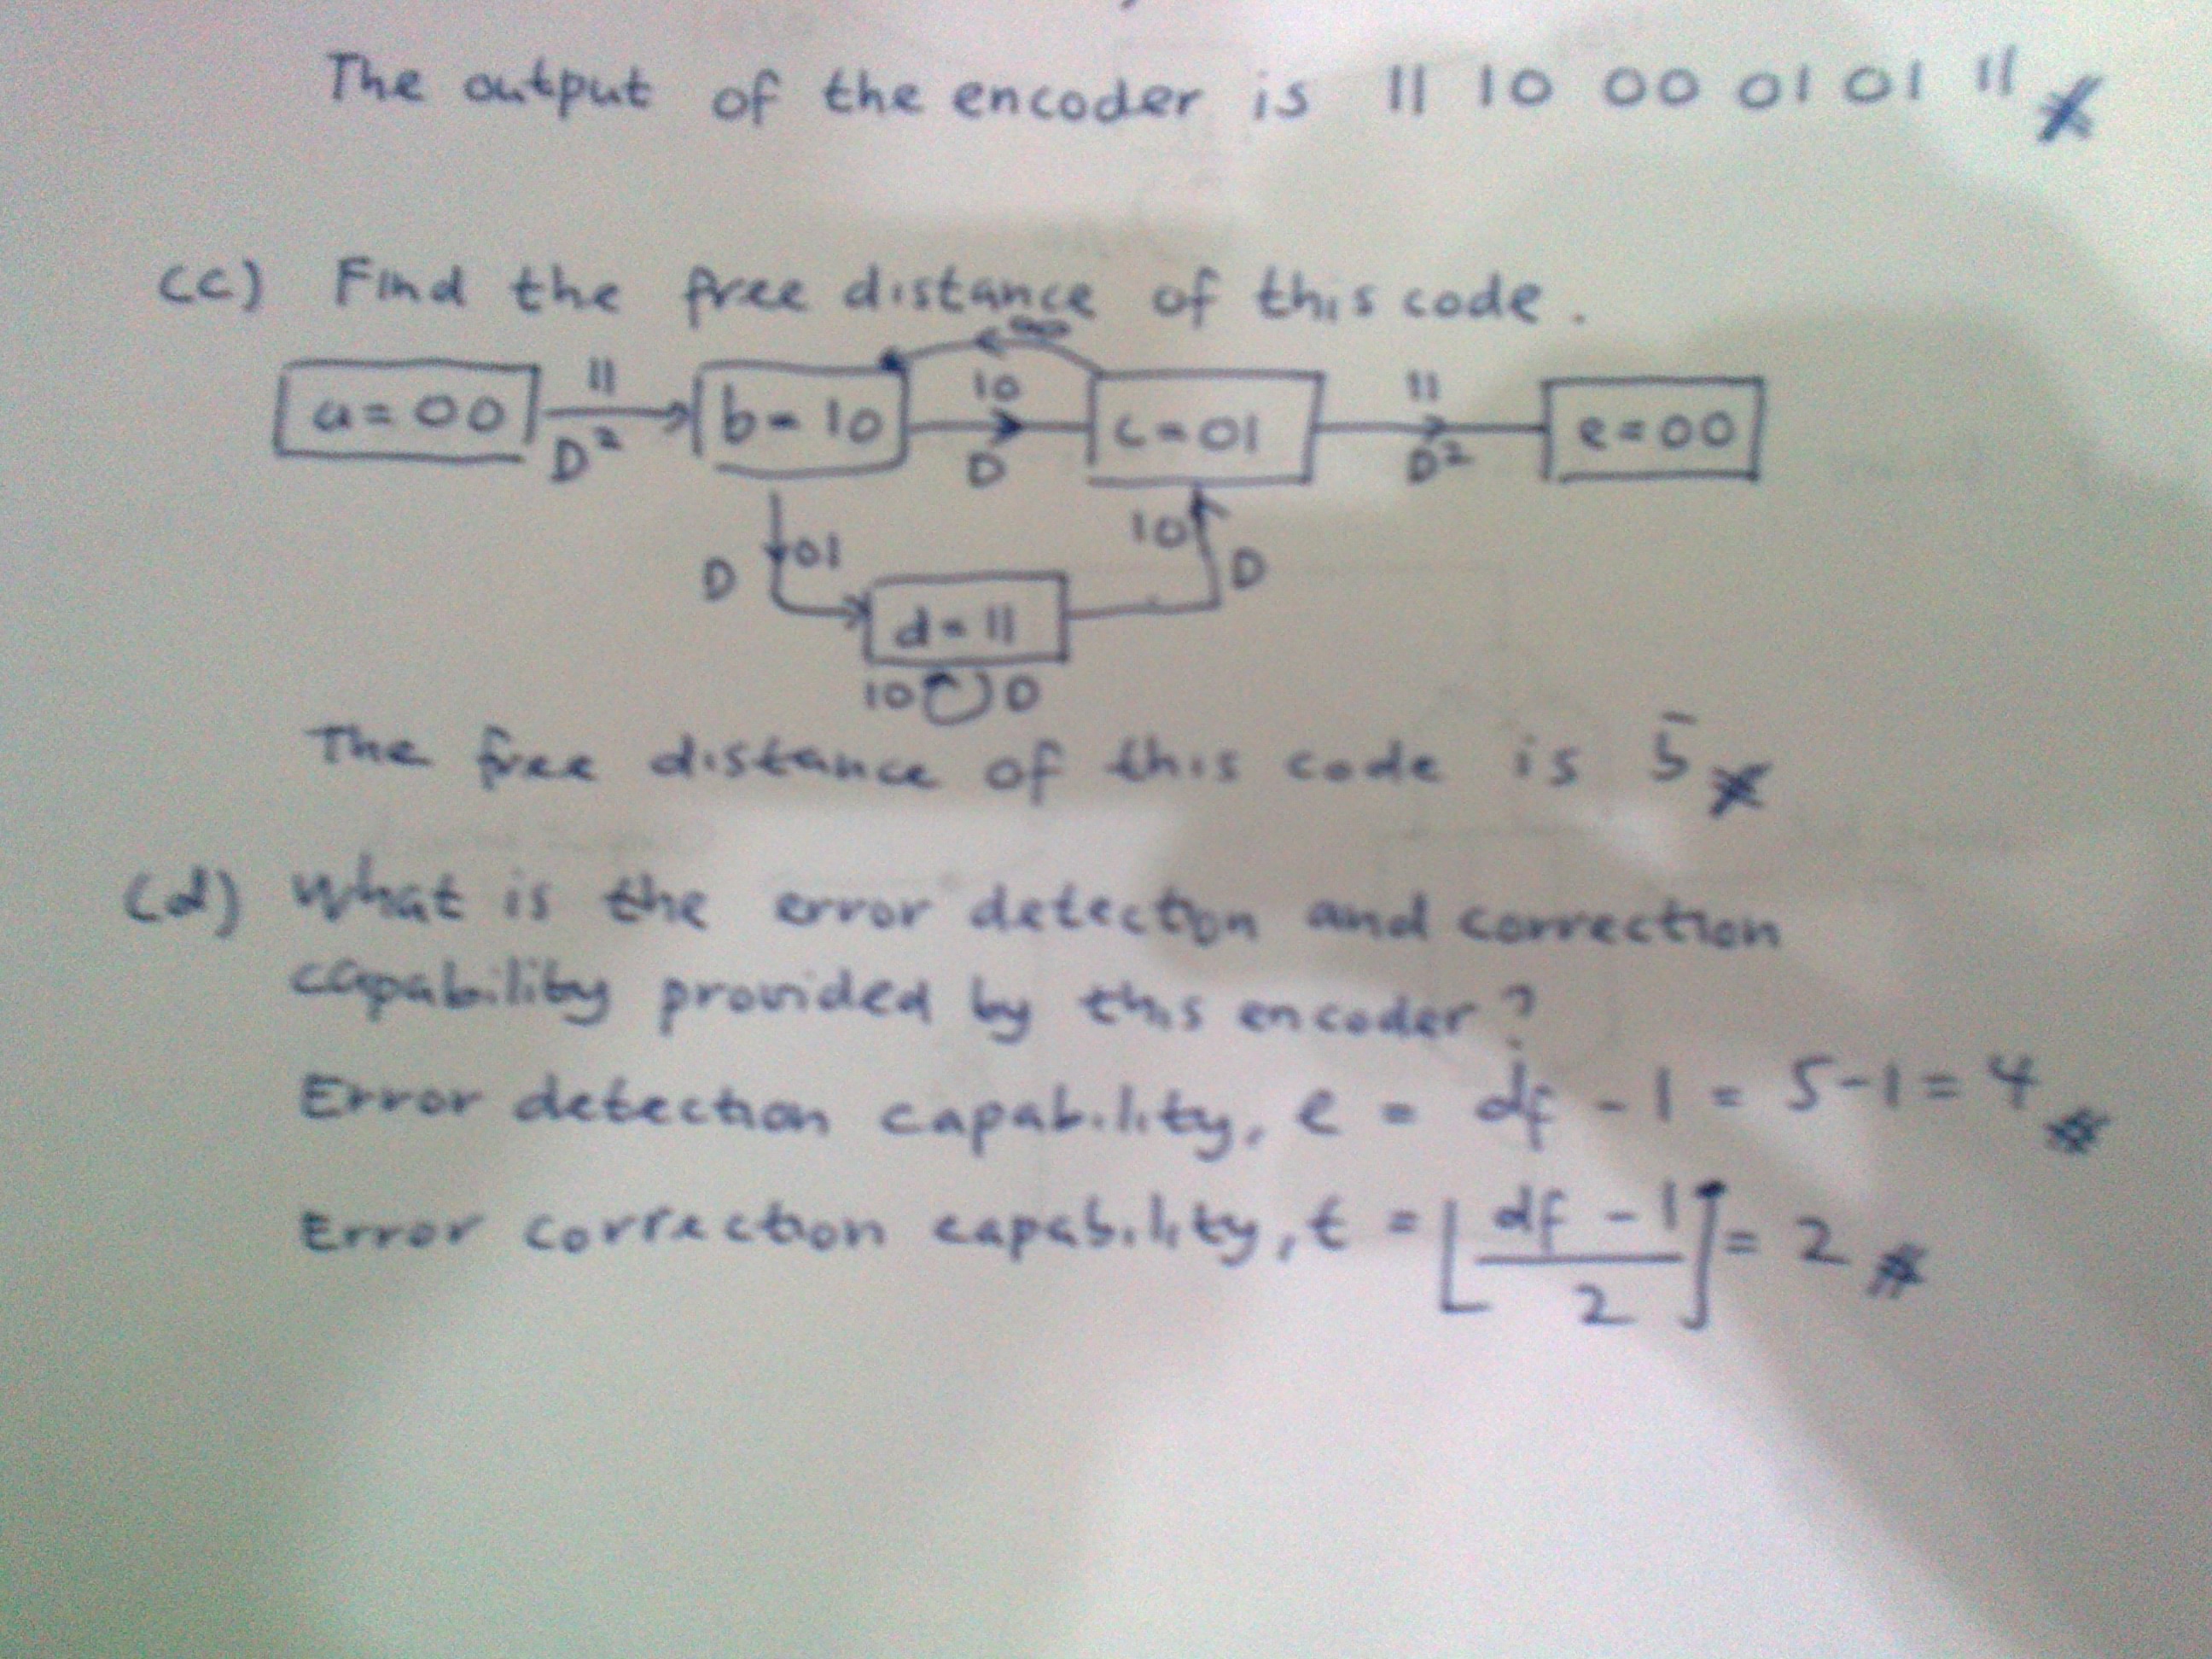 The output of the encoder is 11 10 00 01 01 11
(c) Find the free distance of this code.
00
a = 00 11 D² b = 10 10 D c = 01 11 D² e = 00
D 01 10 D
d = 11
10 D
The free distance of this code is 5
(d) What is the error detection and correction
capability provided by this encoder?
Error detection capability, e = df - 1 = 5-1 = 4 #
Error correction capability, t = ⌊(df - 1)/2⌋ = 2 #